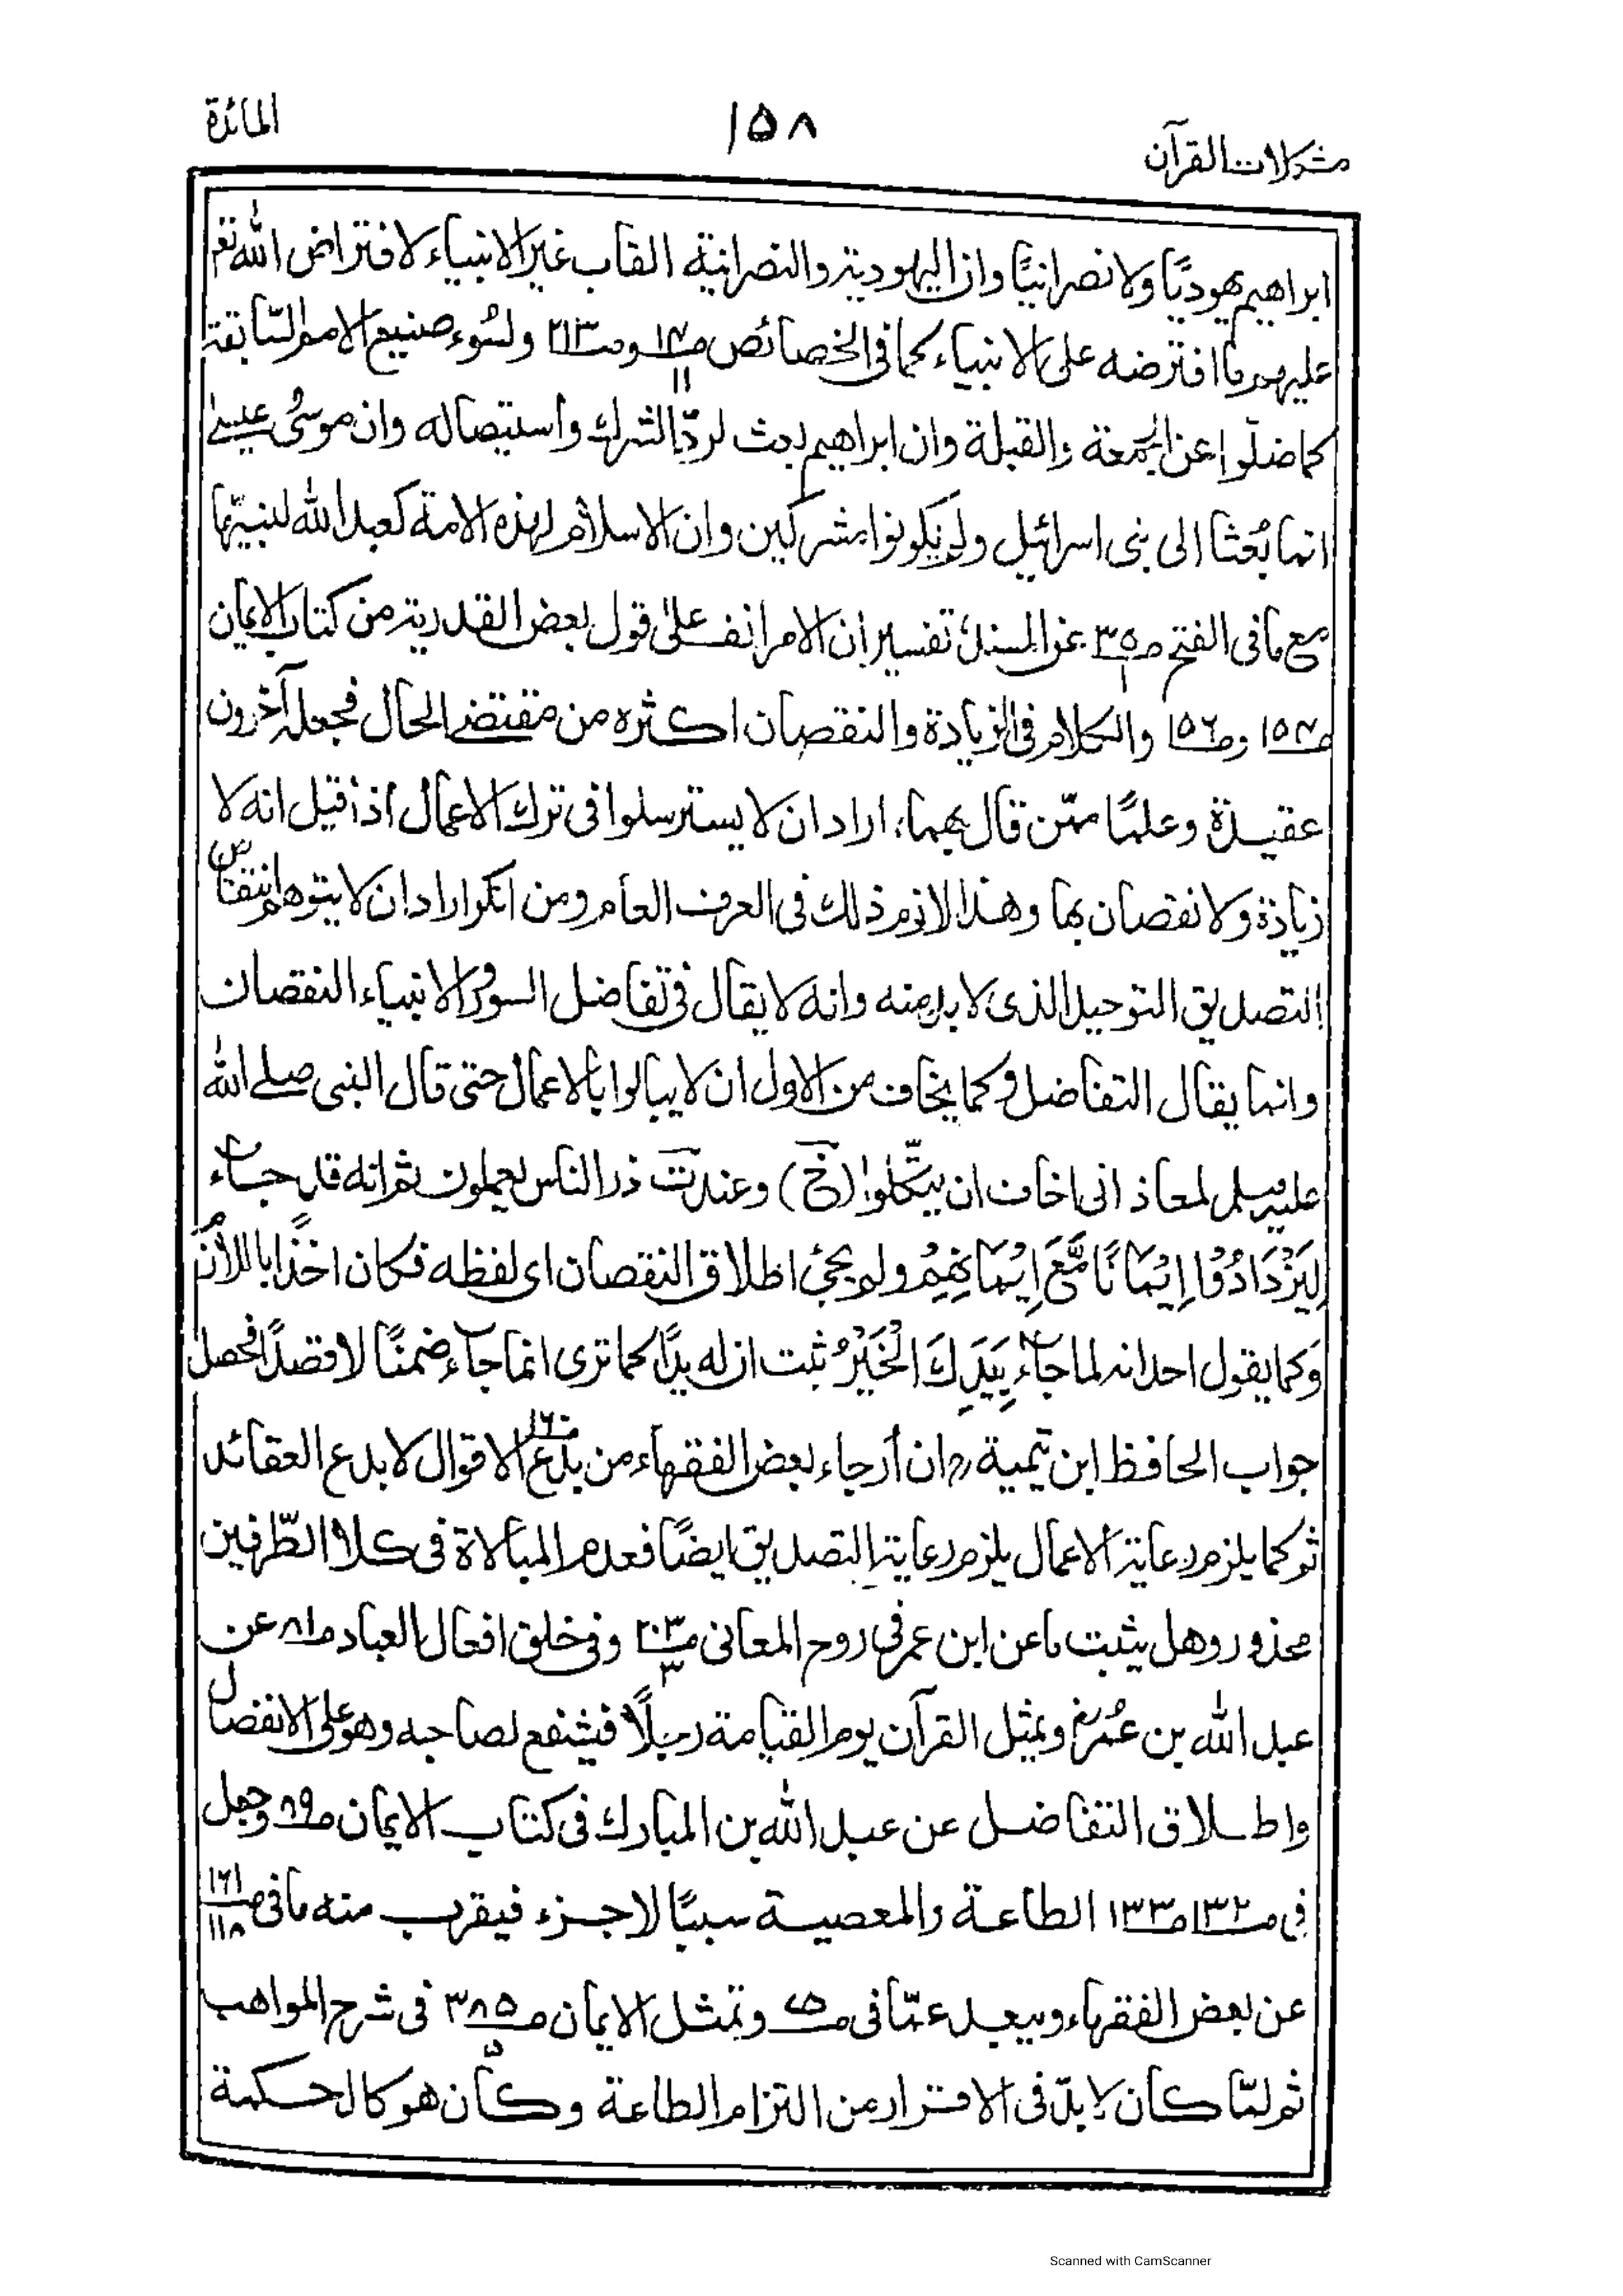 مشكلات القرآن
١٥٨
المائدة
ابراهيم يهوديًا ولا نصرانيًا وان اليهودية والنصرانية القاب غير الانبياء لافتراض الله تعم
عليهم ما افترضه على الانبياء كما فى الخصائص صـ١٤ وصـ٢١٣ ولسُوء صنيع الامم السّابقة
كما ضلّوا عن الجمعة والقبلة وان ابراهيم بعث لردّ الشرك واستيصاله وان موسٰى عيسٰى
انما بُعثا الى بنى اسرائيل ولم يكونوا مشركين وان الاسلام لهذه الامة كعبد الله لنبيّها
مع ما فى الفتح صـ٣٥ عن المسند تفسير ان الامر انف على قول بعض القدرية من كتاب الايمان
صـ١٥٤ وصـ١٥٦ والكلام فى الزيادة والنقصان اكثره من مقتضى الحال فجعله آخرون
عقيدة وعلمًا ممّن قال بهما، اراد ان لا يسترسلوا فى ترك الاعمال اذا قيل انه لا
زيادة ولا نقصان بها وهذا لازم ذلك فى العرف العام ومن انكر اراد ان لا يتوهم انتقاص
التصديق التوحيد الذى لابد منه وانه لا يقال فى تفاضل السور والانبياء النقصان
وانما يقال التفاضل وكما يخاف من الاول ان لا يبالوا بالاعمال حتى قال النبى صلے الله
عليه وسلم لمعاذ انى اخاف ان يتّكلوا (خ) وعند ت ذر الناس يعملون ثم انه قد جاء
لِيَزْدَادُوْا اِيْمَانًا مَّعَ اِيْمَانِهِمْ ولم يجئ اطلاق النقصان اى لفظه فكان اخذًا باللازم
وكما يقول احد انه لما جاء بِيَدِكَ الْخَيْرُ ثبت ان له يدًا كما ترى انما جاء ضمنًا لا قصدًا فحصل
جواب الحافظ ابن تيمية رح ان أرجاء بعض الفقهاء من بدع الاقوال لا بدع العقائد
صـ١٦٠
ثم كما يلزم رعاية الاعمال يلزم رعاية التصديق ايضًا فعدم المبالاة فى كلا الطّرفين
محذور وهل يثبت ما عن ابن عمر فى روح المعانى صـ٢٠٣ وفى خلق افعال العباد صـ٨١ عن
عبد الله بن عُمر ويمثل القرآن يوم القيامة رجلًا فيشفع لصاحبه وهو على الانفصال
واطلاق التفاضل عن عبد الله بن المبارك فى كتاب الايمان صـ٨٩ وجعل
فى صـ١٣٢ صـ١٣٣ الطاعة والمعصية سببًا لا جزء فيقرب منه ما فى صـ١٦١/١١٨
عن بعض الفقهاء ويبعد عمّا فى وتمثل الايمان صـ٣٨٥ فى شرح المواهب
ثم لمّا كان لابدّ فى الاقرار من التزام الطاعة وكان هو كالحكمة
Scanned with CamScanner